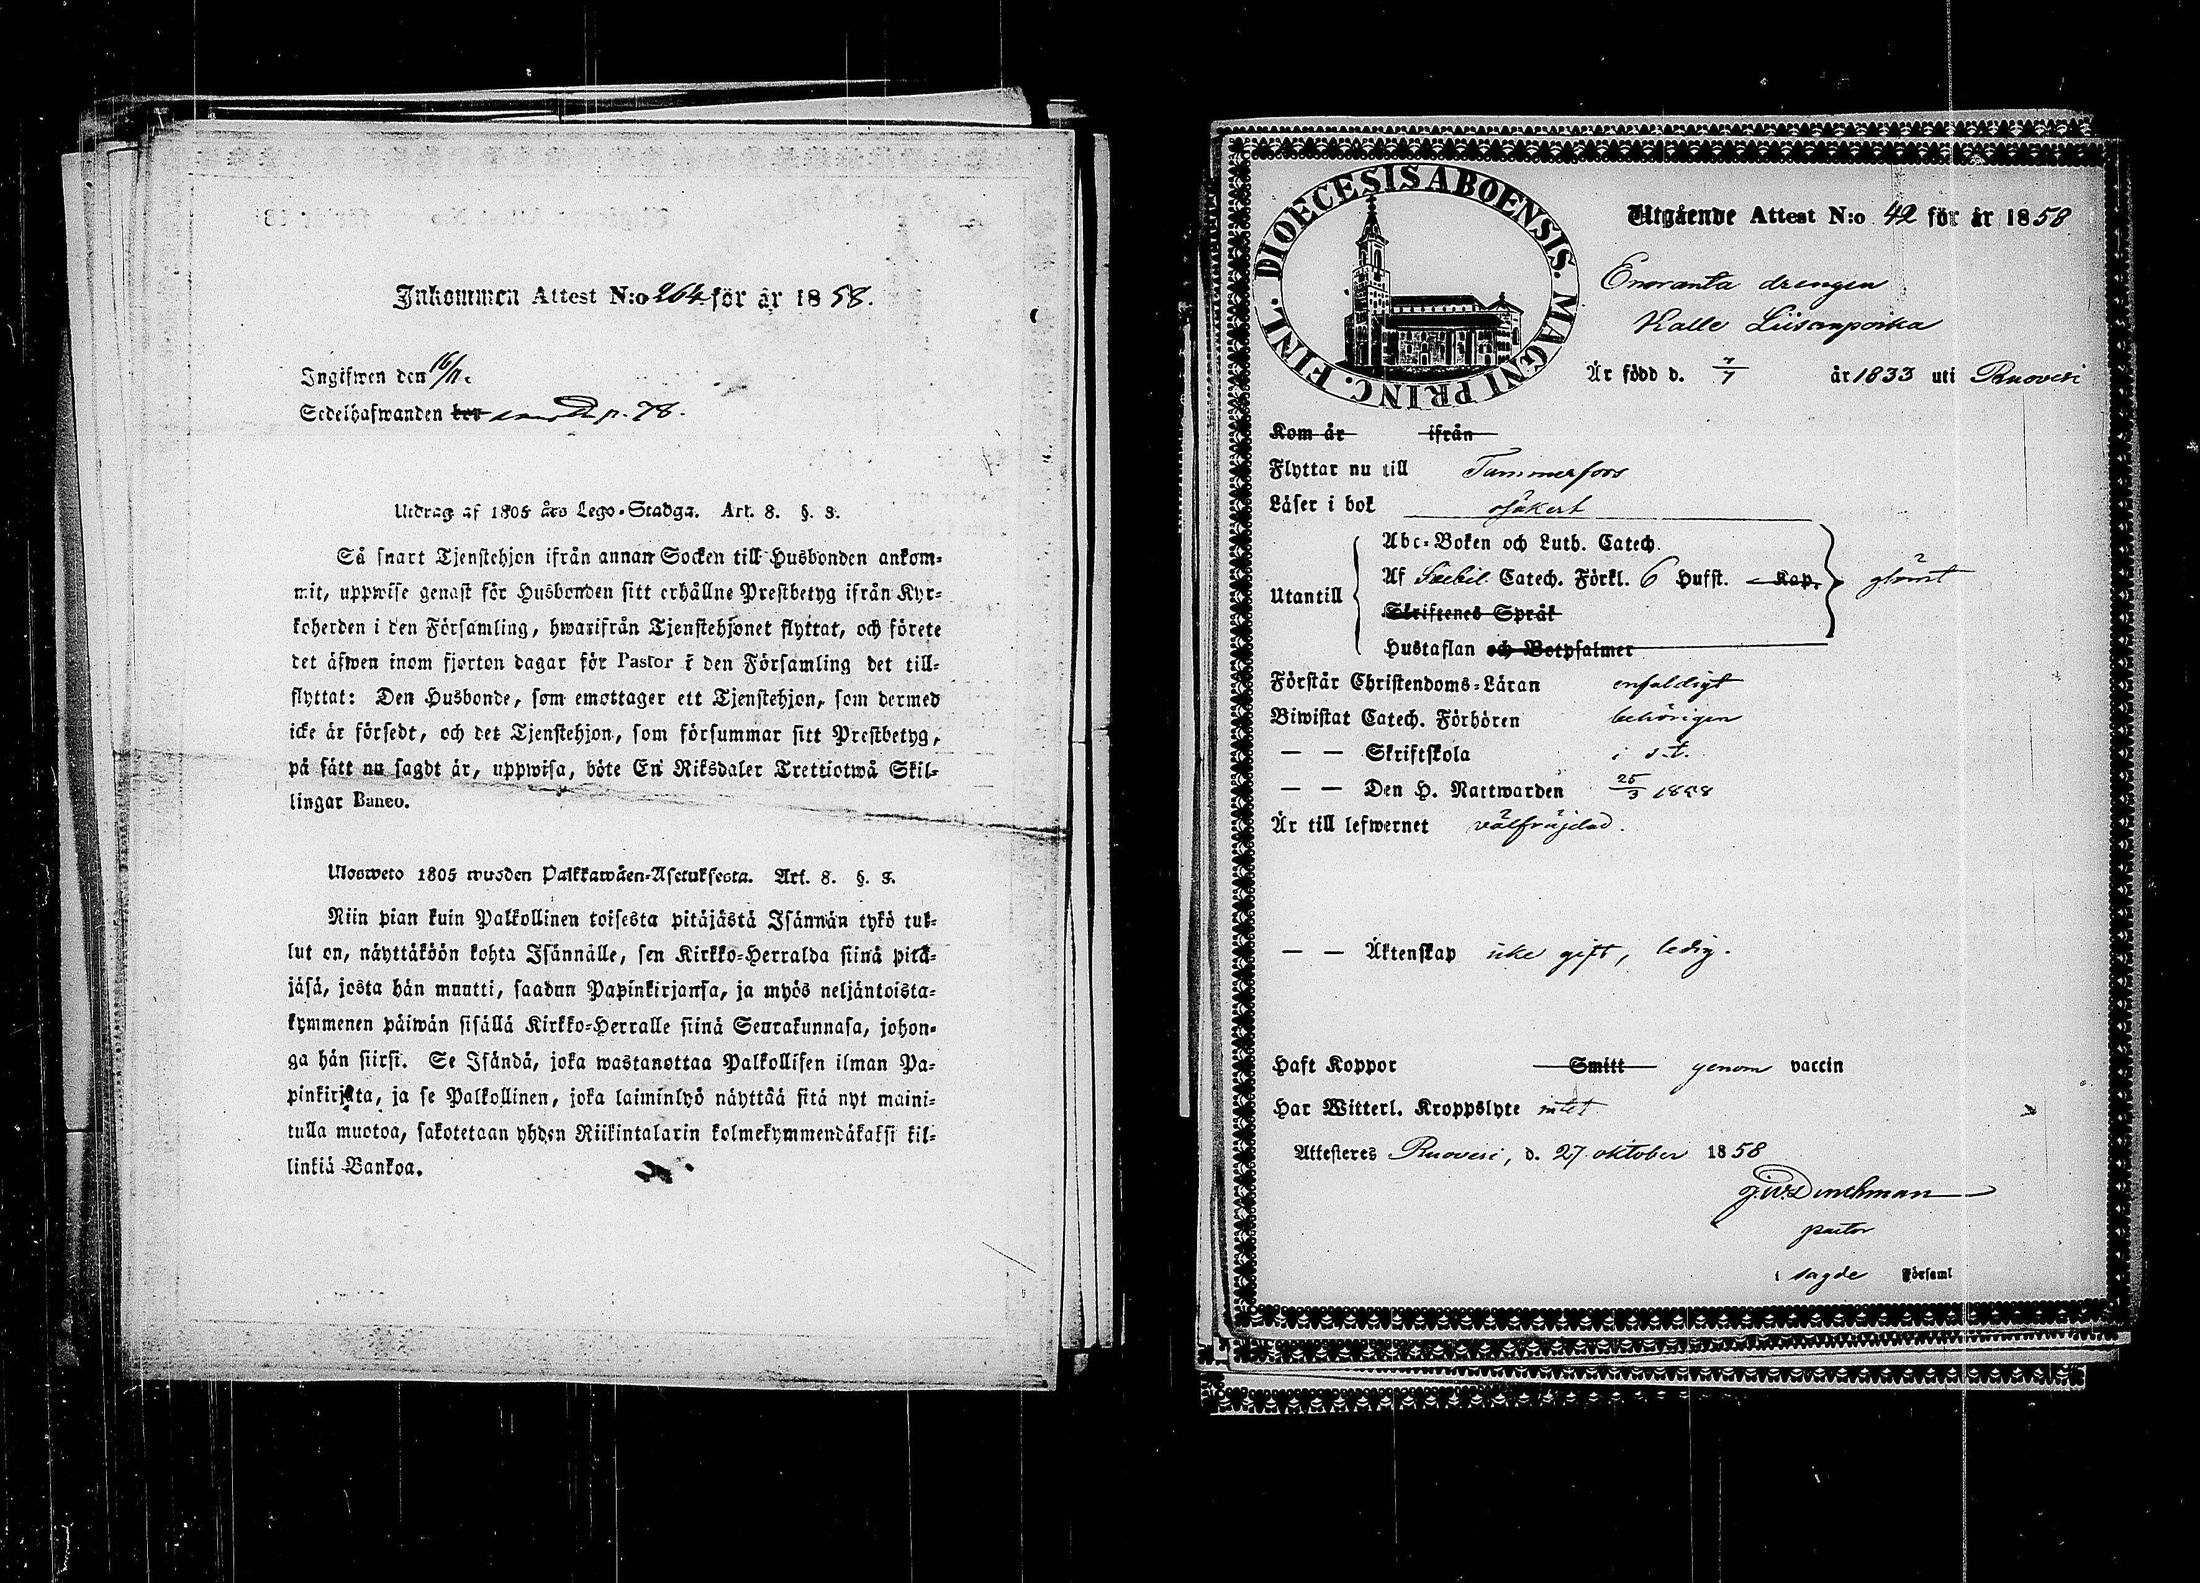 Inkommen Attest N:o 264 för år 1858.
Ingifwen den 16/11.
Sedelhafwanden p. 78.
Utdrag af 1805 års Lego-Stadga. Art. 8. §. 3.
Så snart Tjenstehjon ifrån annan Socken till Husbonden ankom-
mit, uppwise genast för Husbonden sitt erhållne Prestbetyg ifrån Kyr-
koherden i den Församling, hwarifrån Tjenstehjonet flyttat, och förete
det äfwen inom fjorton dagar för Pastor i den Församling det till-
flyttat: Den Husbonde, som emottager ett Tjenstehjon, som dermed
icke är försedt, och det Tjenstehjon, som försummar sitt Prestbetyg,
på sätt nu sagdt är, uppwisa, böte En Riksdaler Trettiotwå Skil-
lingar Banco.
Ulosweto 1805 wuoden Palkkawäen-Asetuksesta. Art. 8. §. 3.
Niin pian kuin Palkollinen toisesta pitäjästä Isännän tykö tul-
lut on, näyttäköön kohta Isännälle, sen Kirkko-Herralda siinä pitä-
jäsä, josta hän muutti, saadun Papinkirjansa, ja myös neljäntoista-
kymmenen päiwän sisällä Kirkko-Herralle siinä Seurakunnasa, johon-
ga hän siirsi. Se Isändä, joka wastanottaa Palkollisen ilman Pa-
pinkirjata, ja se Palkollinen, joka laiminlyö näyttää sitä nyt maini-
tulla muotoa, sakotetaan yhden Riikintalarin kolmekymmendäkaksi kil-
linkiä Bankoa.
DIOECESIS ABOENSIS. MAGNI PRINC. FINL.
Utgående Attest N:o 42 för år 1858
Enoranta drengen
Kalle Liisanpoika
Är född d. 7/7 år 1833 uti Ruovesi
Kom år ifrån
Flyttar nu till Tammerfors
Läser i bok osäkert
Abc-Boken och Luth. Catech.
Utantill Af Svebil. Catech. Förkl. 6 Hufst. Kap. glömt
Skriftenes Språk
Hustaflan och Botpsalmer
Förstår Christendoms-Läran enfaldigt
Biwistat Catech. Förhören behörigen
— — Skriftskola i s.t.
— — Den H. Nattwarden 25/3 1858
Är till lefwernet välfräjdad.
— — Äktenskap icke gift, ledig.
Haft Koppor Smitt genom vaccin
Har Witterl. Kroppslyte intet
Attesteres Ruovesi, d. 27 oktober 1858
pastor
i sagde Församl